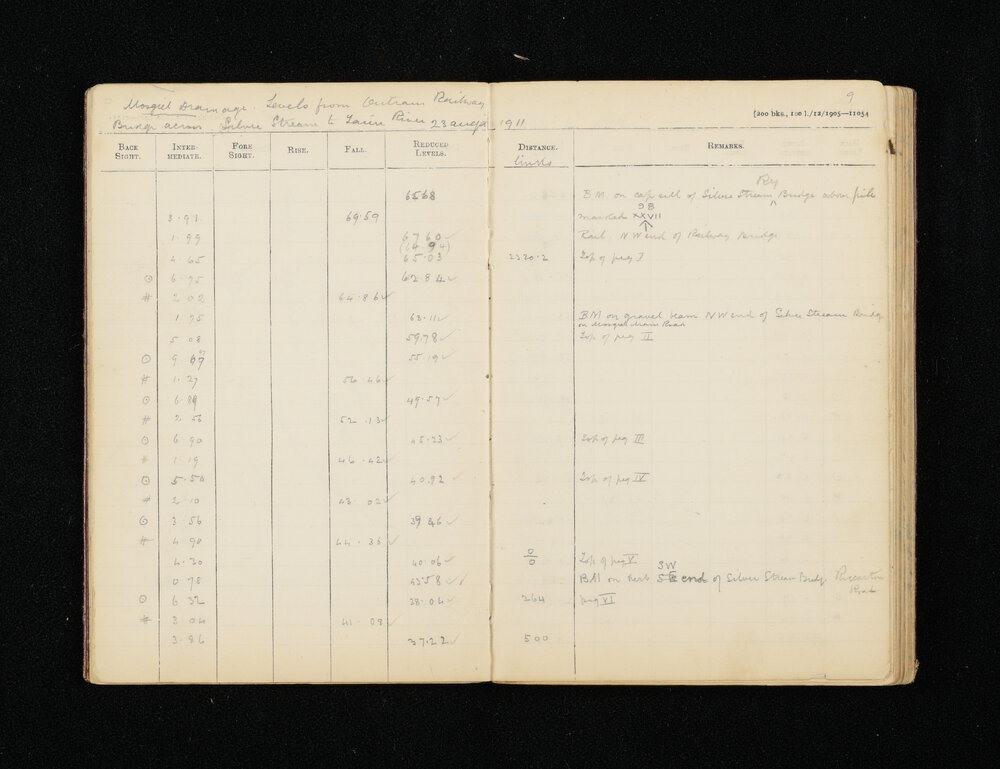 9
Mosgiel Drainage. Levels from Outram Railway
Bridge across Silver Stream to Taieri River 23 augst 1911
[200 bks., 100 l./12/1905—11054
BACK SIGHT. INTERMEDIATE. FORE SIGHT. RISE. FALL. REDUCED LEVELS. DISTANCE. REMARKS.
links
Ry
65.68 BM on cap sill of Silver Stream ^ Bridge above pile
9B
3.91 69.59 marked XXVII
1.99 67.60 Rail. NW end of Railway Bridge
(64 94)
4.65 65.03 2320.2 Top of peg I
⊙ 6.75 62.84 ✓
# 2 02 64.86 ✓
1.75 63.11 ✓ BM on gravel beam NW end of Silver Stream Bridge
on Mosgiel Main Road
5 08 59.78 ✓ Top of peg II
⊙ 9 67 55.19 ✓
# 1.27 56.46 ✓
⊙ 6.89 49.57 ✓
# 2.56 52.13 ✓
⊙ 6.90 45.23 ✓ Top of peg III
# 1.19 46.42 ✓
⊙ 5.50 40.92 ✓ Top of peg IV
# 2.10 43.02 ✓
⊙ 3.56 39 46 ✓
# 4.90 44.36 ✓
4.30 40.06 ✓ 0/0 Top of peg V
SW
0.78 43.58 ✓ BM on kerb SE end of Silver Stream Bridge Riccarton
Road
⊙ 6 32 38.04 ✓ 264 peg VI
# 3 04 41.08 ✓
3.86 37.22 ✓ 500